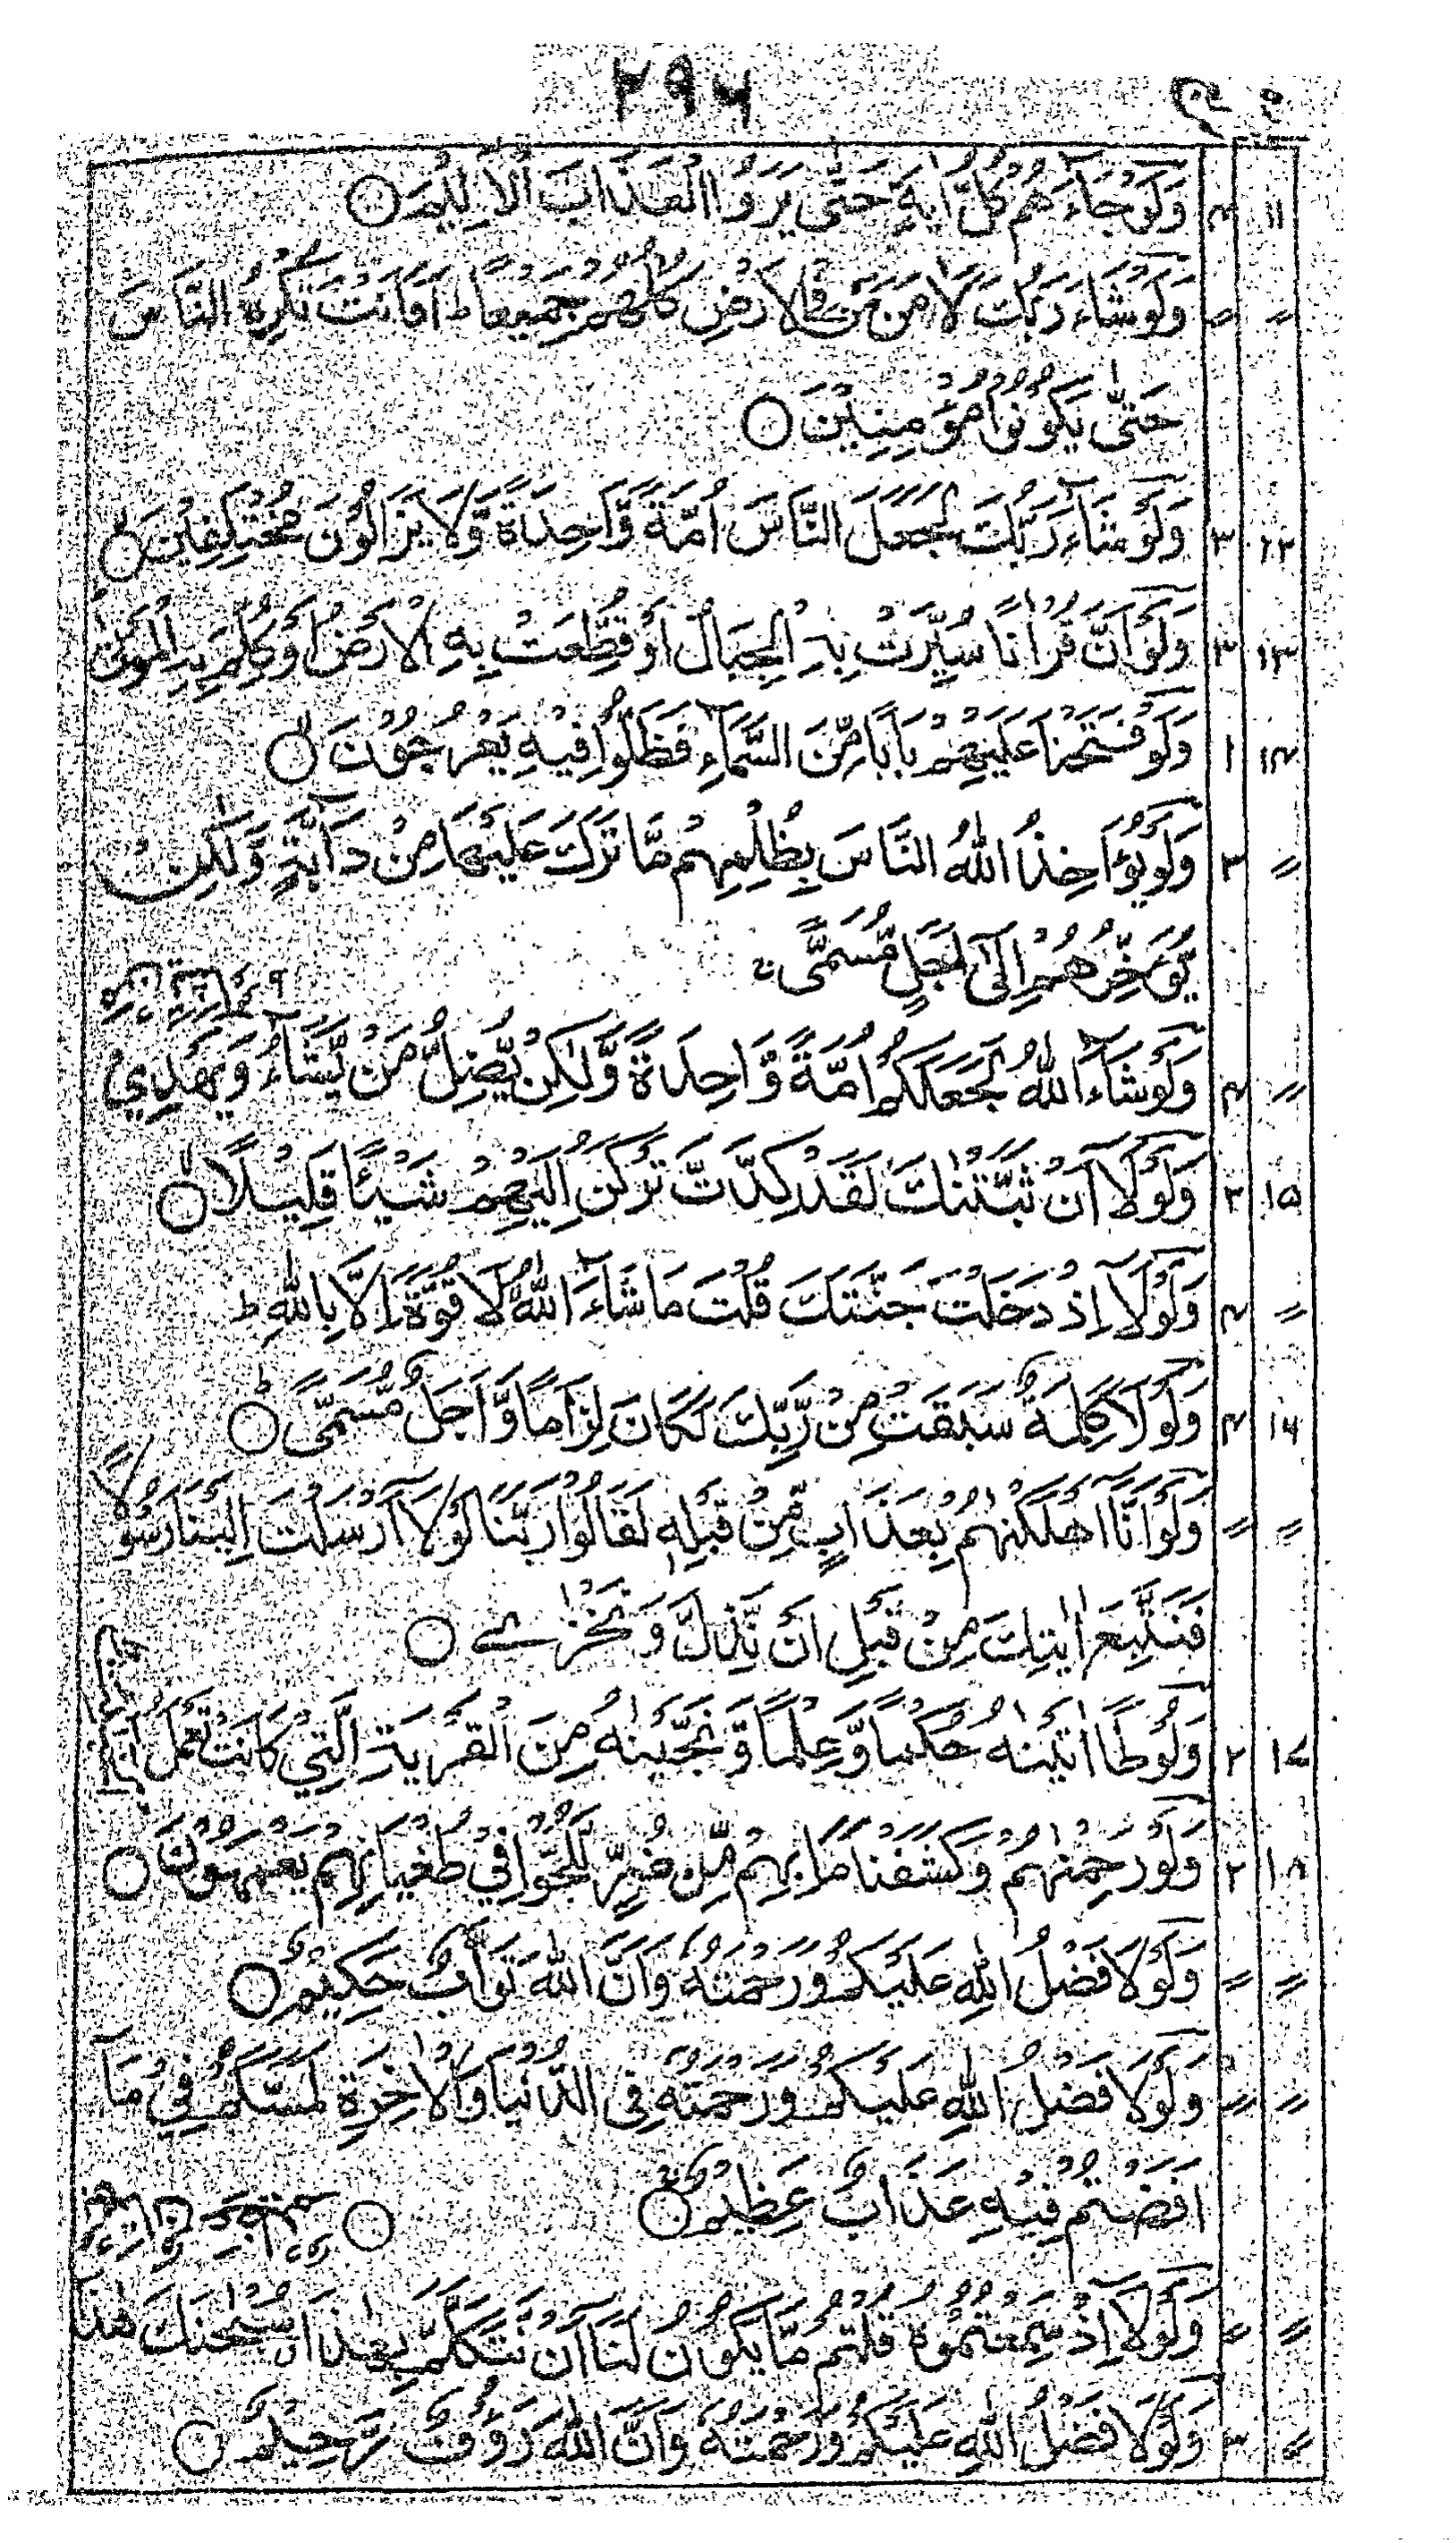 ۲۹۶
۱۱ ۴ وَلَوْ جَآءَتْهُمْ كُلُّ اٰيَةٍ حَتّٰى يَرَوُا الْعَذَابَ الْاَلِيْمَ ○
〃 〃 وَلَوْ شَآءَ رَبُّكَ لَاٰمَنَ مَنْ فِى الْاَرْضِ كُلُّهُمْ جَمِيْعًا ط اَفَاَنْتَ تُكْرِهُ النَّاسَ
حَتّٰى يَكُوْنُوْا مُؤْمِنِيْنَ ○
۱۲ ۳ وَلَوْ شَآءَ رَبُّكَ لَجَعَلَ النَّاسَ اُمَّةً وَّاحِدَةً وَّلَا يَزَالُوْنَ مُخْتَلِفِيْنَ ○
۱۳ ۳ وَلَوْ اَنَّ قُرْاٰنًا سُيِّرَتْ بِهِ الْجِبَالُ اَوْ قُطِّعَتْ بِهِ الْاَرْضُ اَوْ كُلِّمَ بِهِ الْمَوْتٰى
۱۴ ۱ وَلَوْ فَتَحْنَا عَلَيْهِمْ بَابًا مِّنَ السَّمَآءِ فَظَلُّوْا فِيْهِ يَعْرُجُوْنَ ○
〃 ۳ وَلَوْ يُؤَاخِذُ اللّٰهُ النَّاسَ بِظُلْمِهِمْ مَّا تَرَكَ عَلَيْهَا مِنْ دَآبَّةٍ وَّلٰكِنْ
يُّؤَخِّرُهُمْ اِلٰٓى اَجَلٍ مُّسَمًّى
〃 ۴ وَلَوْ شَآءَ اللّٰهُ لَجَعَلَكُمْ اُمَّةً وَّاحِدَةً وَّلٰكِنْ يُّضِلُّ مَنْ يَّشَآءُ وَيَهْدِيْ
۱۵ ۳ وَلَوْلَآ اَنْ ثَبَّتْنٰكَ لَقَدْ كِدْتَّ تَرْكَنُ اِلَيْهِمْ شَيْئًا قَلِيْلًا ○
〃 ۴ وَلَوْلَآ اِذْ دَخَلْتَ جَنَّتَكَ قُلْتَ مَا شَآءَ اللّٰهُ لَا قُوَّةَ اِلَّا بِاللّٰهِ ط
۱۶ ۴ وَلَوْلَا كَلِمَةٌ سَبَقَتْ مِنْ رَّبِّكَ لَكَانَ لِزَامًا وَّاَجَلٌ مُّسَمًّى ○
〃 〃 وَلَوْ اَنَّآ اَهْلَكْنٰهُمْ بِعَذَابٍ مِّنْ قَبْلِهٖ لَقَالُوْا رَبَّنَا لَوْلَآ اَرْسَلْتَ اِلَيْنَا رَسُوْلًا
فَنَتَّبِعَ اٰيٰتِكَ مِنْ قَبْلِ اَنْ نَّذِلَّ وَنَخْزٰے ○
۱۷ ۲ وَلُوْطًا اٰتَيْنٰهُ حُكْمًا وَّعِلْمًا وَّنَجَّيْنٰهُ مِنَ الْقَرْيَةِ الَّتِيْ كَانَتْ تَعْمَلُ
۱۸ ۲ وَلَوْ رَحِمْنٰهُمْ وَكَشَفْنَا مَا بِهِمْ مِّنْ ضُرٍّ لَّلَجُّوْا فِيْ طُغْيَانِهِمْ يَعْمَهُوْنَ ○
〃 〃 وَلَوْلَا فَضْلُ اللّٰهِ عَلَيْكُمْ وَرَحْمَتُهٗ وَاَنَّ اللّٰهَ تَوَّابٌ حَكِيْمٌ ○
〃 〃 وَلَوْلَا فَضْلُ اللّٰهِ عَلَيْكُمْ وَرَحْمَتُهٗ فِى الدُّنْيَا وَالْاٰخِرَةِ لَمَسَّكُمْ فِيْ مَآ
اَفَضْتُمْ فِيْهِ عَذَابٌ عَظِيْمٌ ○ ○
〃 〃 وَلَوْلَآ اِذْ سَمِعْتُمُوْهُ قُلْتُمْ مَّا يَكُوْنُ لَنَآ اَنْ نَّتَكَلَّمَ بِهٰذَا سُبْحٰنَكَ هٰذَا
〃 ۳ وَلَوْلَا فَضْلُ اللّٰهِ عَلَيْكُمْ وَرَحْمَتُهٗ وَاَنَّ اللّٰهَ رَءُوْفٌ رَّحِيْمٌ ○